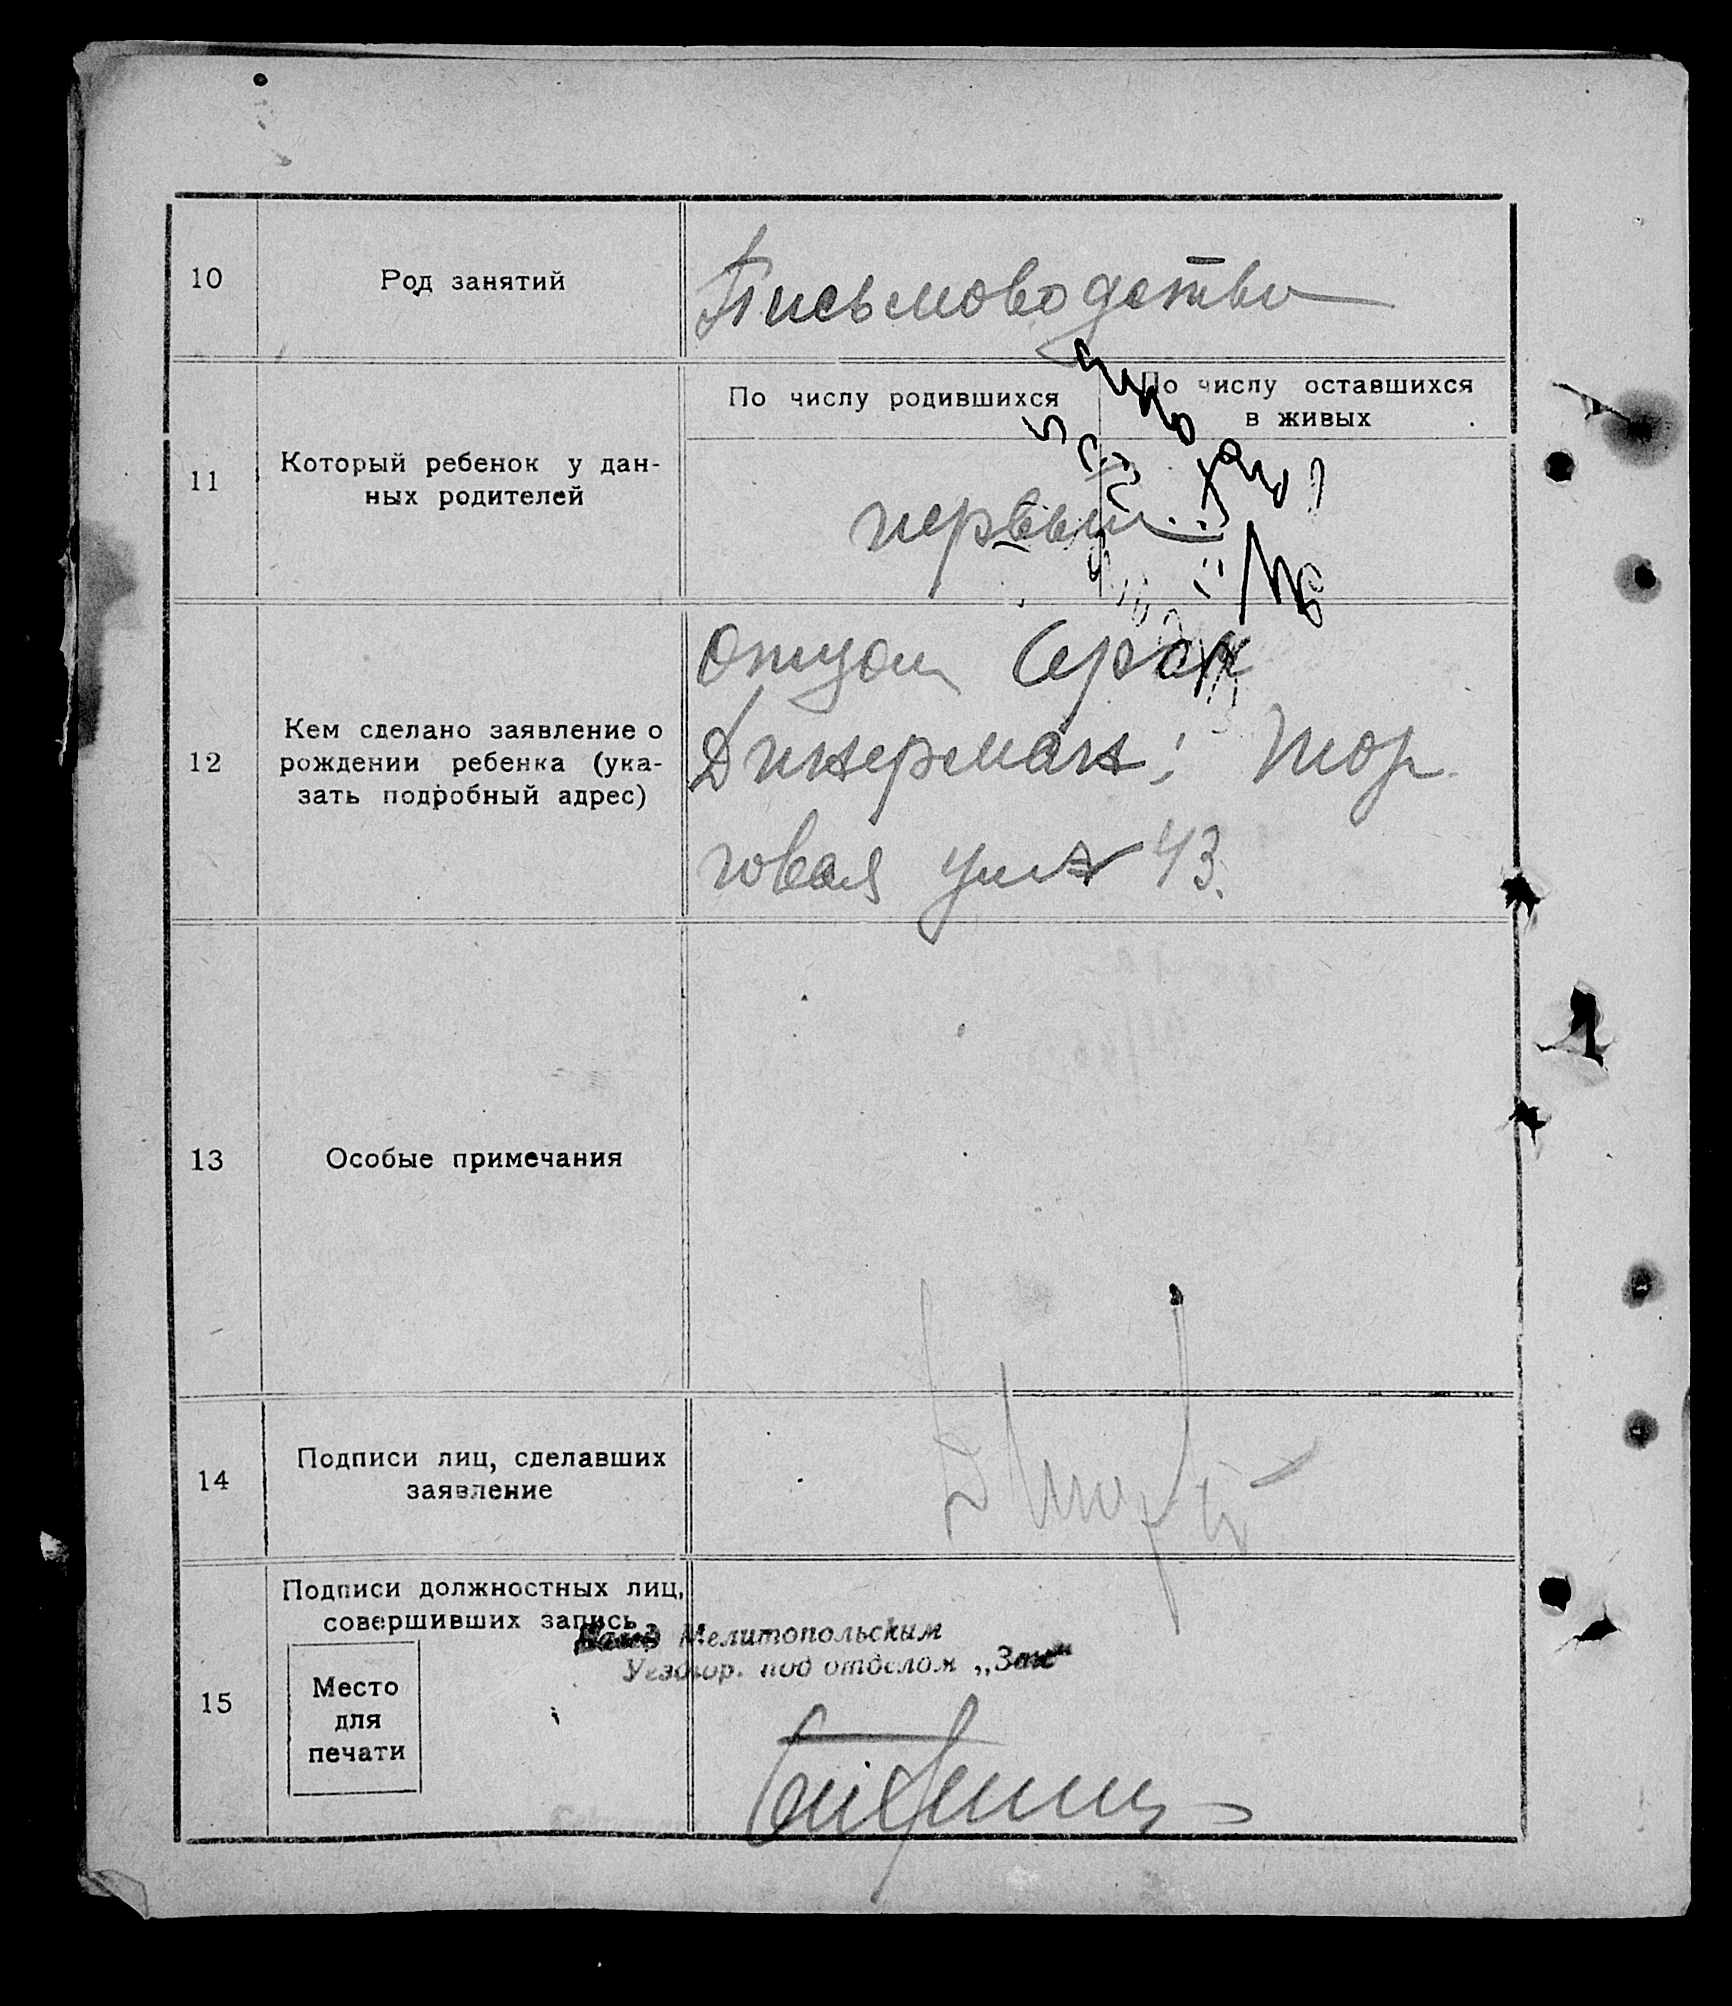 10
Род занятий
Письмоводство
11
Который ребенок у дан-
ных родителей
По числу родившихся
По числу оставшихся
в живых
первый
12
Кем сделано заявление о
рождении ребенка (ука-
зать подробный адрес)
отцом
Динерман; Тор
говая ул 43.
13
Особые примечания
14
Подписи лиц, сделавших
заявление
15
Подписи должностных лиц,
совершивших запись
Место
для
печати
Мелитопольским
под отделом „Заг“